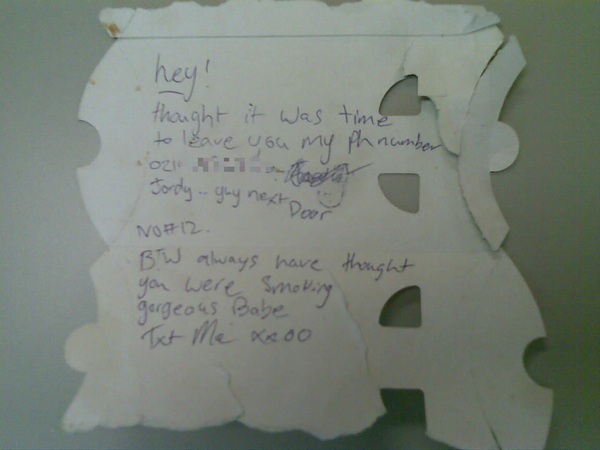 hey!
thought it was time
to leave you my ph number
021
Jordy.. guy next
Door
NO#12.
BTW always have thought
you were smoking
gorgeous Babe
Txt Me xxoo